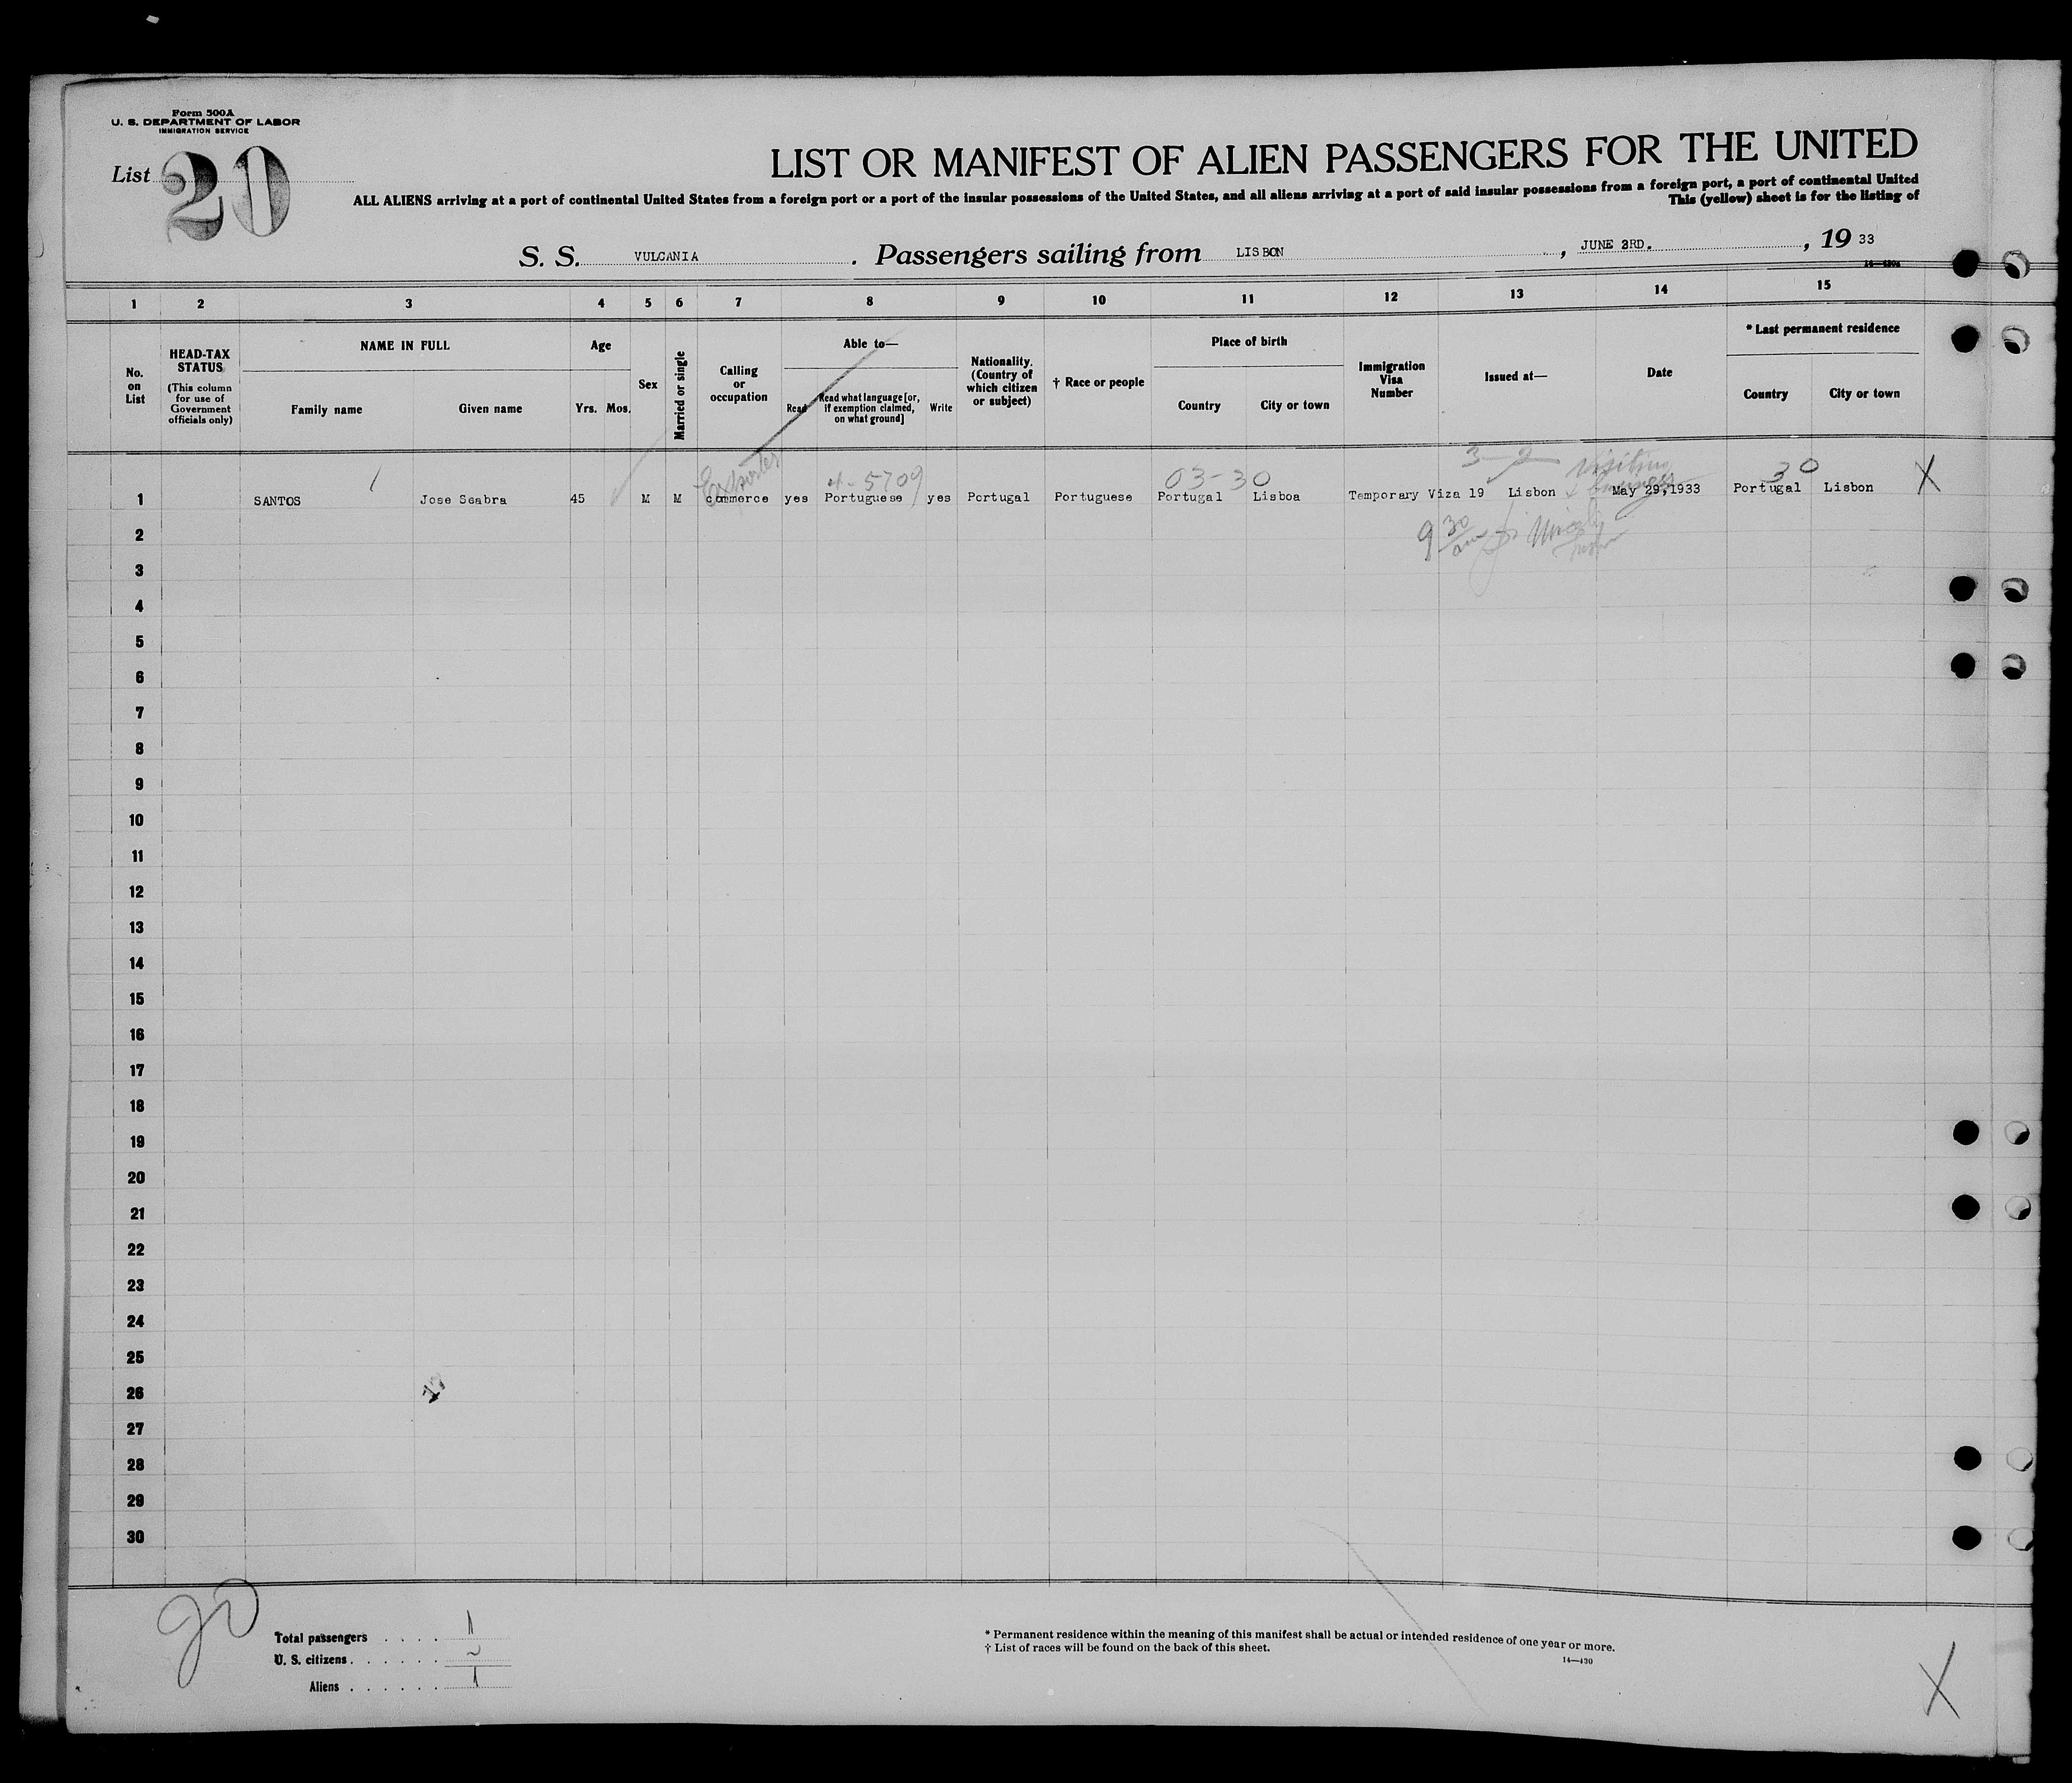 Form 500A
U. S. DEPARTMENT OF LABOR
IMMIGRATION SERVICE
List 20
LIST OR MANIFEST OF ALIEN PASSENGERS FOR THE UNITED
ALL ALIENS arriving at a port of continental United States from a foreign port or a port of the insular possessions of the United States, and all aliens arriving at a port of said insular possessions from a foreign port, a port of continental United
This (yellow) sheet is for the listing of
S. S. VULCANIA . Passengers sailing from LISBON , JUNE 3RD. , 19 33
1 2 3 4 5 6 7 8 9 10 11 12 13 14 15
No. on List
HEAD-TAX STATUS
(This column for use of Government officials only)
NAME IN FULL
Family name Given name
Age
Yrs. Mos.
Sex
Married or single
Calling or occupation
Able to—
Read
Read what language [or, if exemption claimed, on what ground]
Write
Nationality. (Country of which citizen or subject)
† Race or people
Place of birth
Country City or town
Immigration Visa Number
Issued at—
Date
* Last permanent residence
Country City or town
Exporter 4-5709 03-30 3-2 Visiting 30 X
1 SANTOS Jose Seabra 45 M M commerce yes Portuguese yes Portugal Portuguese Portugal Lisboa Temporary Viza 19 Lisbon May 29,1933 Portugal Lisbon
9 30 am
2
3
4
5
6
7
8
9
10
11
12
13
14
15
16
17
18
19
20
21
22
23
24
25
26
27
28
29
30
20
Total passengers . . . . 1
U. S. citizens . . . . . .
Aliens . . . . . . 1
* Permanent residence within the meaning of this manifest shall be actual or intended residence of one year or more.
† List of races will be found on the back of this sheet.
14—430
X